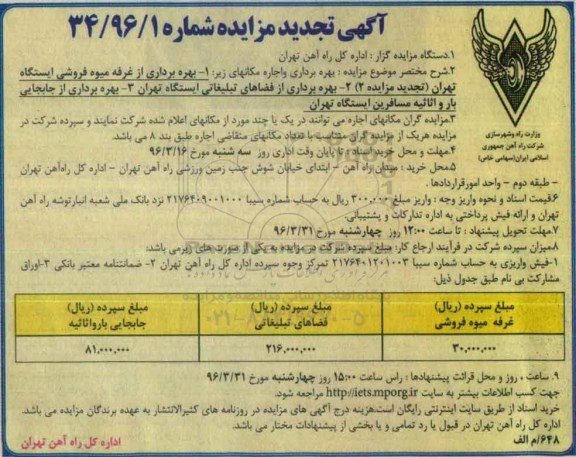 آگهی تجدید مزایده شماره ۳۴/۹۶/۱
وزارت راه وشهرسازی
شرکت راه آهن جمهوری
اسلامی ایران(سهامی خاص)
۱.دستگاه مزایده گزار : اداره کل راه آهن تهران
۲.شرح مختصر موضوع مزایده : بهره برداری واجاره مکانهای زیر: ۱- بهره برداری از غرفه میوه فروشی ایستگاه
تهران (تجدید مزایده ۲) ۲- بهره برداری از فضاهای تبلیغاتی ایستگاه تهران ۳- بهره برداری از جابجایی
بار و اثاثیه مسافرین ایستگاه تهران
۳.مزایده گران مکانهای اجاره می توانند در یک یا چند مورد از مکانهای اعلام شده شرکت نمایند و سپرده شرکت در
مزایده هریک از مزایده گران متناسب با تعداد مکانهای متقاضی اجاره طبق بند ۸ می باشد.
۴.مهلت و محل خرید اسناد : تا پایان وقت اداری روز سه شنبه مورخ ۹۶/۳/۱۶
۵.محل خرید : میدان راه آهن - ابتدای خیابان شوش جنب زمین ورزشی راه آهن - اداره کل راه‌آهن تهران
- طبقه دوم - واحد امورقراردادها .
۶.قیمت اسناد و نحوه واریز وجه : واریز مبلغ ۳۰۰,۰۰۰ ریال به حساب شماره سیبا ۲۱۷۶۴۰۹۰۰۱۰۰۰ نزد بانک ملی شعبه انبارتوشه راه آهن
تهران و ارائه فیش پرداختی به اداره تدارکات و پشتیبانی.
۷.مهلت تحویل پیشنهاد : تا ساعت ۱۲:۰۰ روز چهارشنبه مورخ ۹۶/۳/۳۱
۸.میزان سپرده شرکت در فرآیند ارجاع کار: مبلغ سپرده شرکت در مزایده به یکی از صورت های زیرمی باشد:
۱-فیش واریزی به حساب شماره سیبا ۲۱۷۶۴۰۱۲۰۱۰۰۳ تمرکز وجوه سپرده اداره کل راه آهن تهران ۲- ضمانتنامه معتبر بانکی ۳-اوراق
مشارکت بی نام طبق جدول ذیل:
مبلغ سپرده (ریال) غرفه میوه فروشی | مبلغ سپرده (ریال) فضاهای تبلیغاتی | مبلغ سپرده (ریال) جابجایی بارواثاثیه
۳۰,۰۰۰,۰۰۰ | ۲۱۶,۰۰۰,۰۰۰ | ۸۱,۰۰۰,۰۰۰
۹. ساعت ، روز و محل قرائت پیشنهادها : راس ساعت ۱۵:۰۰ روز چهارشنبه مورخ ۹۶/۳/۳۱
جهت کسب اطلاعات بیشتر به سایت http://iets.mporg.ir مراجعه شود.
خرید اسناد از طریق سایت اینترنتی رایگان است.هزینه درج آگهی های مزایده در روزنامه های کثیرالانتشار به عهده برندگان مزایده می باشد.
اداره کل راه آهن تهران در قبول یا رد تمامی و یا بخشی از پیشنهادات مختار می باشد.
۶۴۸/م الف
اداره کل راه آهن تهران